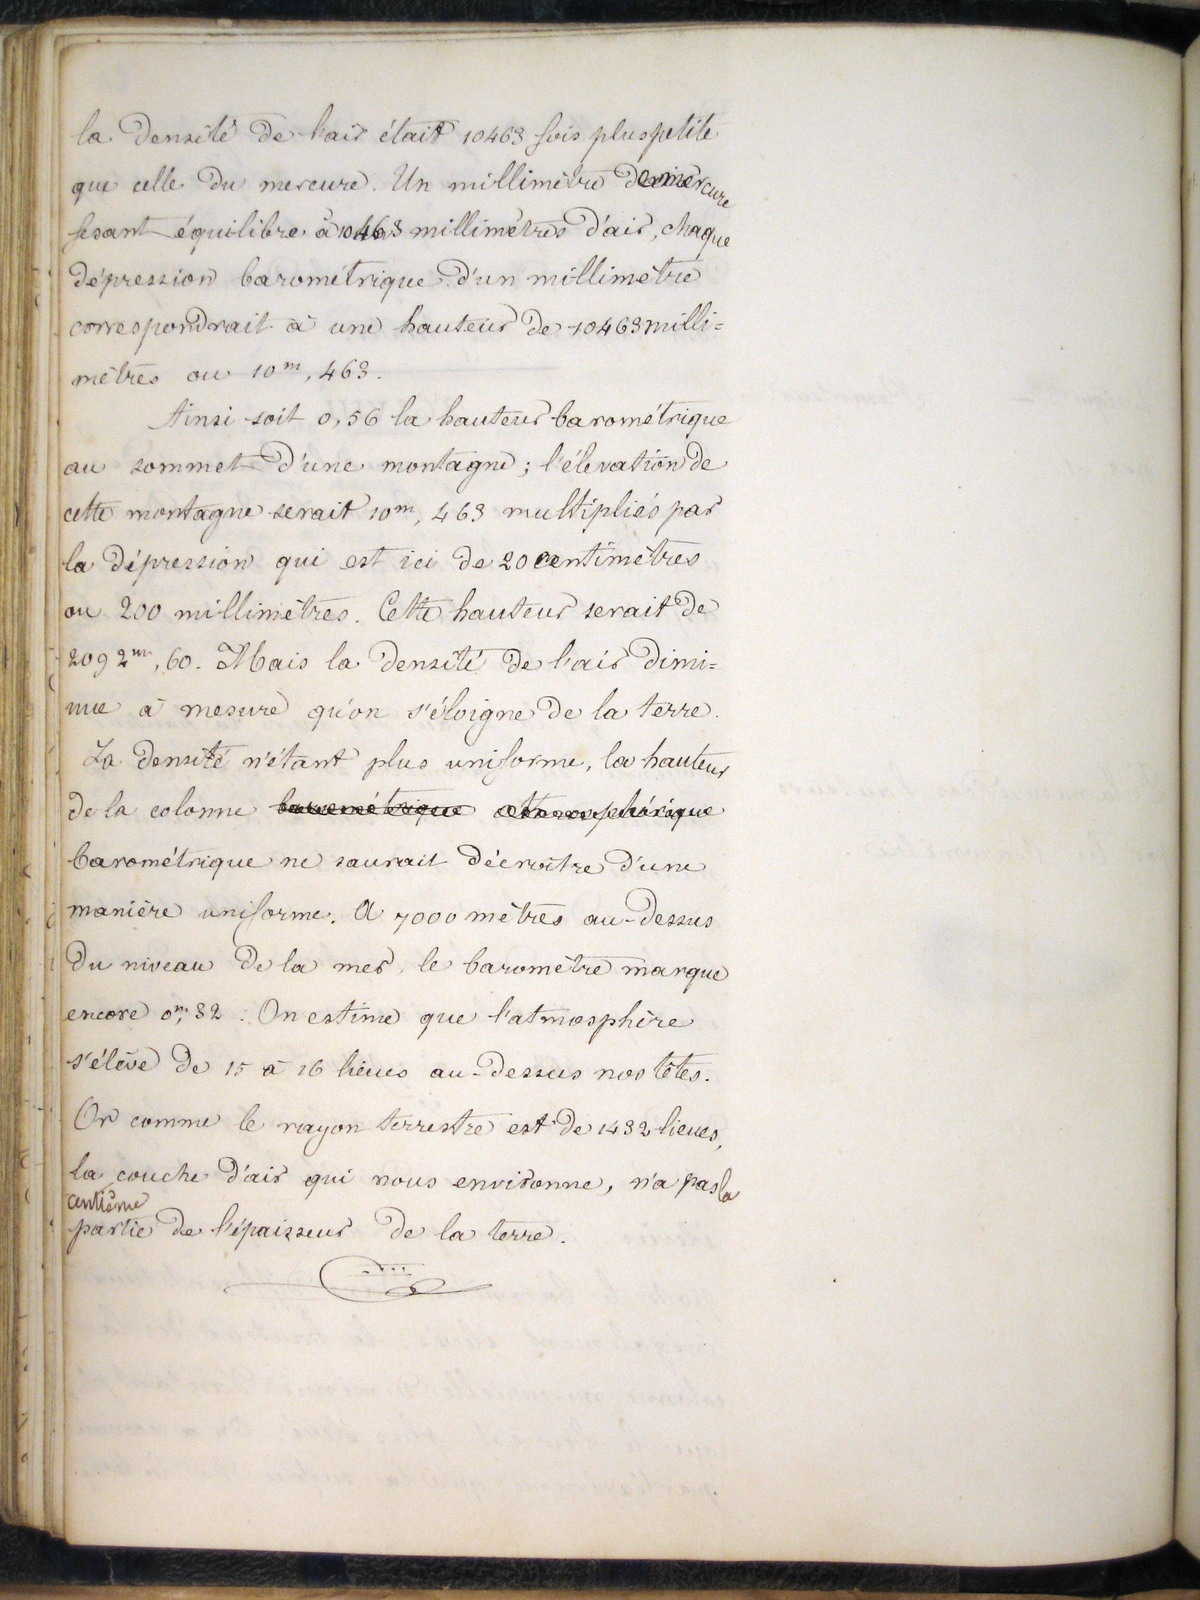 la densité de l'air était 10463 fois plus petite
que celle du mercure. Un millimètre de mercure
fesant équilibre à 10463 millimètres d'air, chaque
dépression barométrique d'un millimètre
correspondrait à une hauteur de 10463 milli=
mètres ou 10m, 463.
Ainsi soit 0,56 la hauteur barométrique
au sommet d'une montagne ; l'élevation de
cette montagne serait 10m, 463 multipliés par
la dépression qui est ici de 20 centimètres
ou 200 millimètres. Cette hauteur serait de
2092m, 60. Mais la densité de l'air dimi=
nue à mesure qu'on s'éloigne de la terre.
La densité n'étant plus uniforme, la hauteur
de la colonne barométrique atmosphérique
barométrique ne saurait décroître d'une
manière uniforme. A 7000 mètres au-dessus
du niveau de la mer, le baromètre marque
encore 0m,32. On estime que l'atmosphère
s'élève de 15 à 16 lieues au-dessus nos têtes.
Or comme le rayon terrestre est de 1432 lieues,
la couche d'air qui nous environne, n'a pas la
centième
partie de l'épaisseur de la terre.